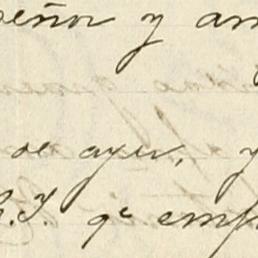 señor y am
de ayer, y
S. I. qe emp